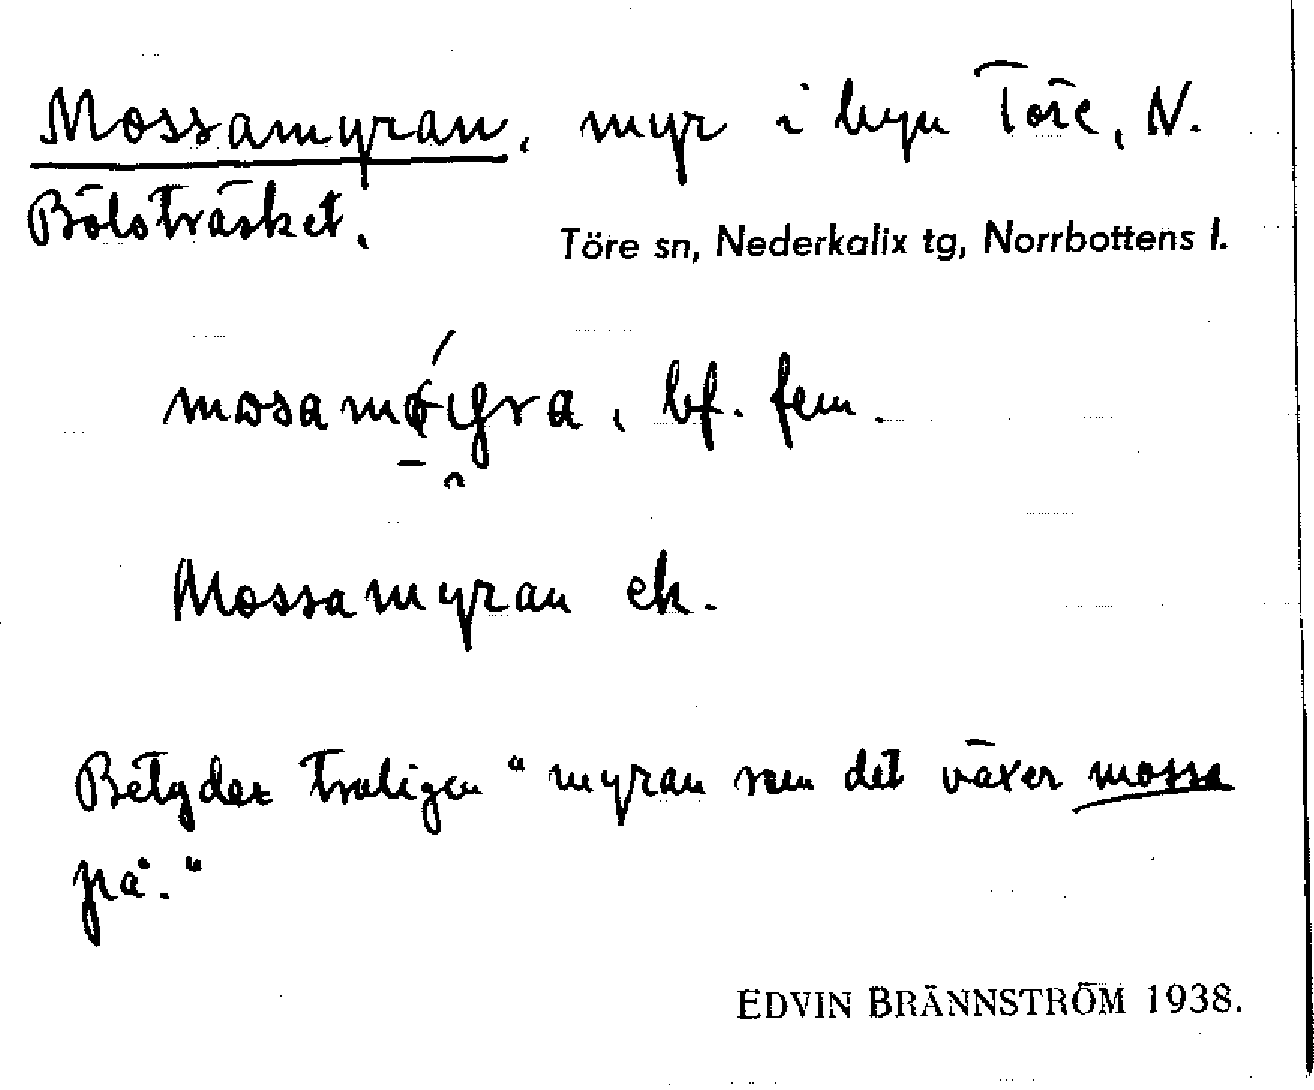 Mossamyran, myr i byn Töre, N.
Bölsträsket.
Töre sn, Nederkalix tg, Norrbottens l.
bf. fem.
Mossamyran ek.
Betyder troligen "myran som det växer mossa
på."
EDVIN BRÄNNSTRÖM 1938.